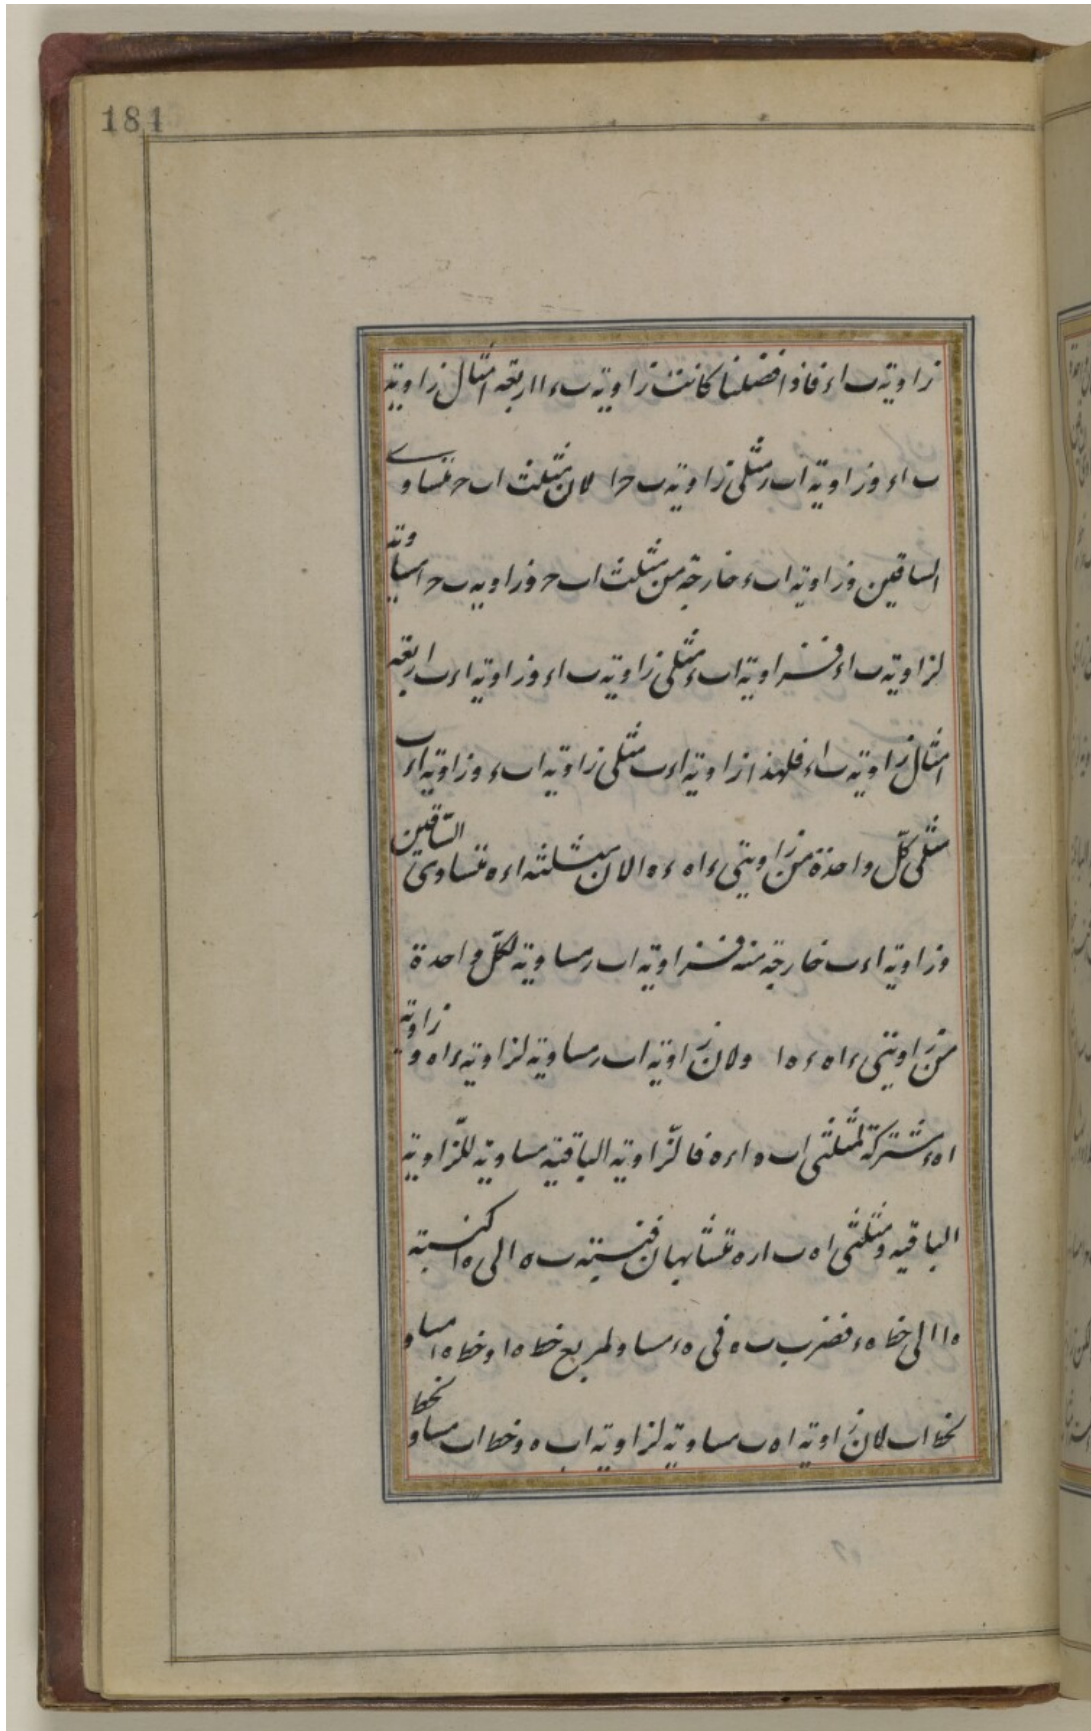 181
زاویة ب اء فاذا فضلنا كانت زاویة ب ء ا اربعة امثال زاویة
ب اء وزاویة اب ء مثلی زاویة ب ح ا لان مثلث اب ح متساوے
الساقین وزاویة اب ء خارجة من مثلث اب ح وزاویه ب ح ا مساویة
لزاویة ب اء فزاویة اب ء مثلی زاویة ب اء وزاویة اء ب اربعة
امثال زاویة ب اء فلهذا زاویة اء ب مثلی زاویة اب ء وزاویة اء ب
مثلی كلّ واحدة من زاویتی ء اه ء ه ا لان مثلثه اء ه متساوی السّاقین
وزاویة اء ب خارجة منه فزاویة اب ء مساویة لكلّ واحدة
من زاویتی ء اه ء ه ا ولان زاویة اب ء مساویة لزاویة ء اه وزاویة
اه ء مشتركة لمثلثی اب ه اء ه فالزّاویة الباقیة مساویة للزّاویة
الباقیه ومثلثی اه ب اء ه متشابهان فنسبة ب ه الی ه ا كنسبة
ه ا الی خط ه ء فضرب ب ه فی ه ء مساو لمربع خط ه ا وخط ه ا مساو
لخط اب لان زاویة اه ب مساویة لزاویة اب ه وخط اب مساو لخط